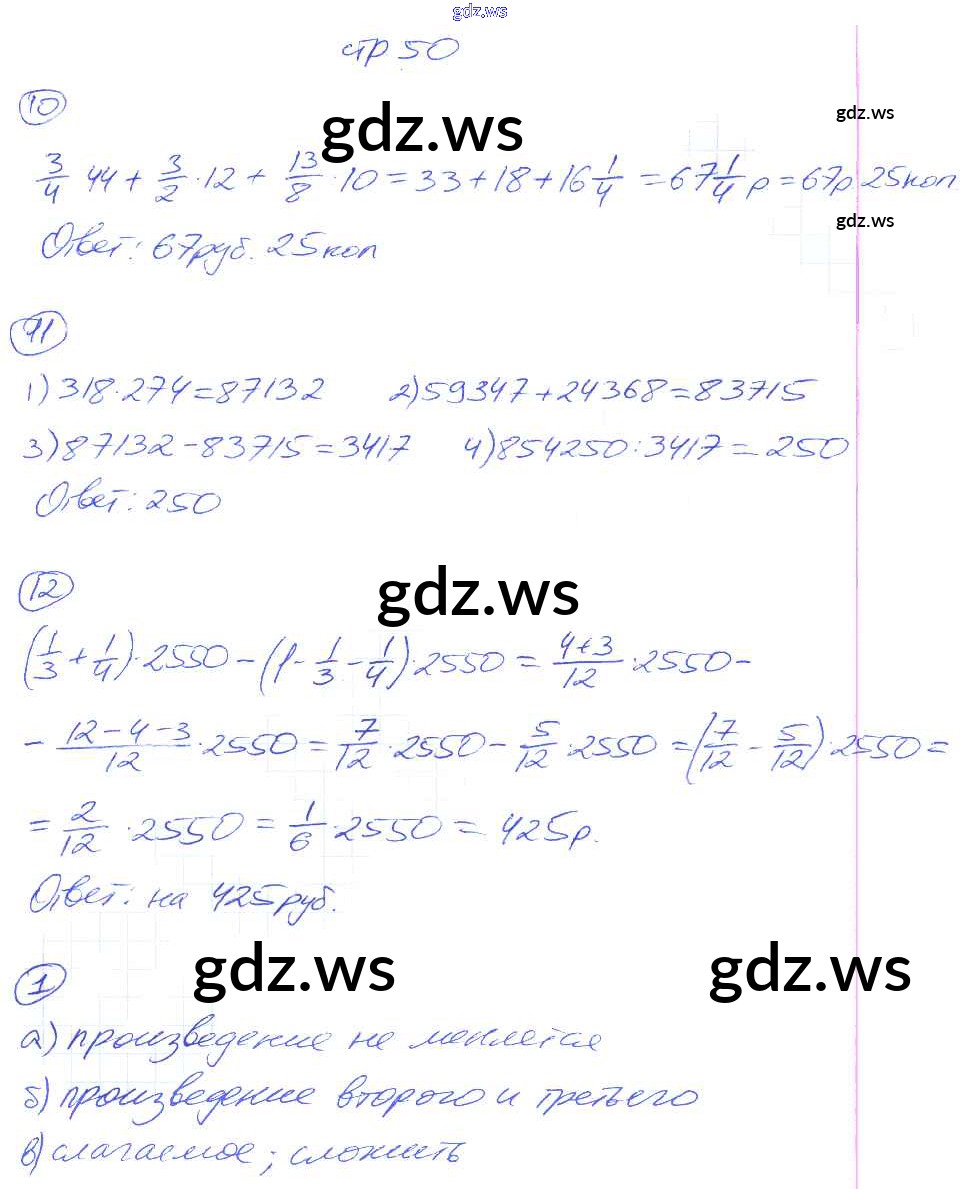 gdz.ws
стр 50
10
gdz.ws
gdz.ws
3/4 44 + 3/2 · 12 + 13/8 · 10 = 33 + 18 + 16 1/4 = 67 1/4 р = 67р 25 коп
gdz.ws
Ответ: 67 руб. 25 коп
11
1) 318 · 274 = 87132 2) 59347 + 24368 = 83715
3) 87132 - 83715 = 3417 4) 854250 : 3417 = 250
Ответ: 250
12
gdz.ws
(1/3 + 1/4) · 2550 - (1 - 1/3 - 1/4) · 2550 = (4+3)/12 · 2550 -
- (12-4-3)/12 · 2550 = 7/12 · 2550 - 5/12 · 2550 = (7/12 - 5/12) · 2550 =
= 2/12 · 2550 = 1/6 · 2550 = 425р.
Ответ: на 425 руб.
1
gdz.ws gdz.ws
а) произведение не меняется
б) произведение второго и третьего
в) слагаемое; сложить